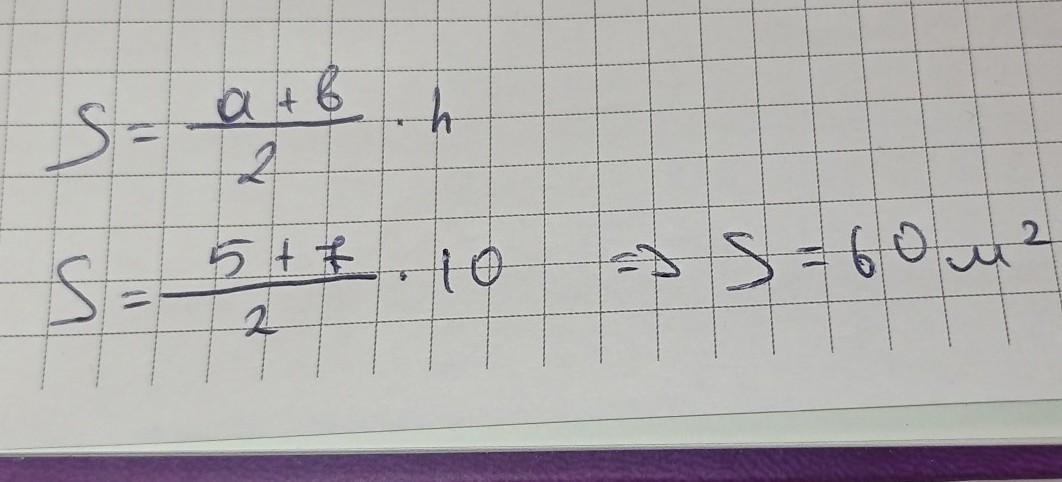 S = a + b / 2 · h
S = 5 + 7 / 2 · 10 => S = 60 м²